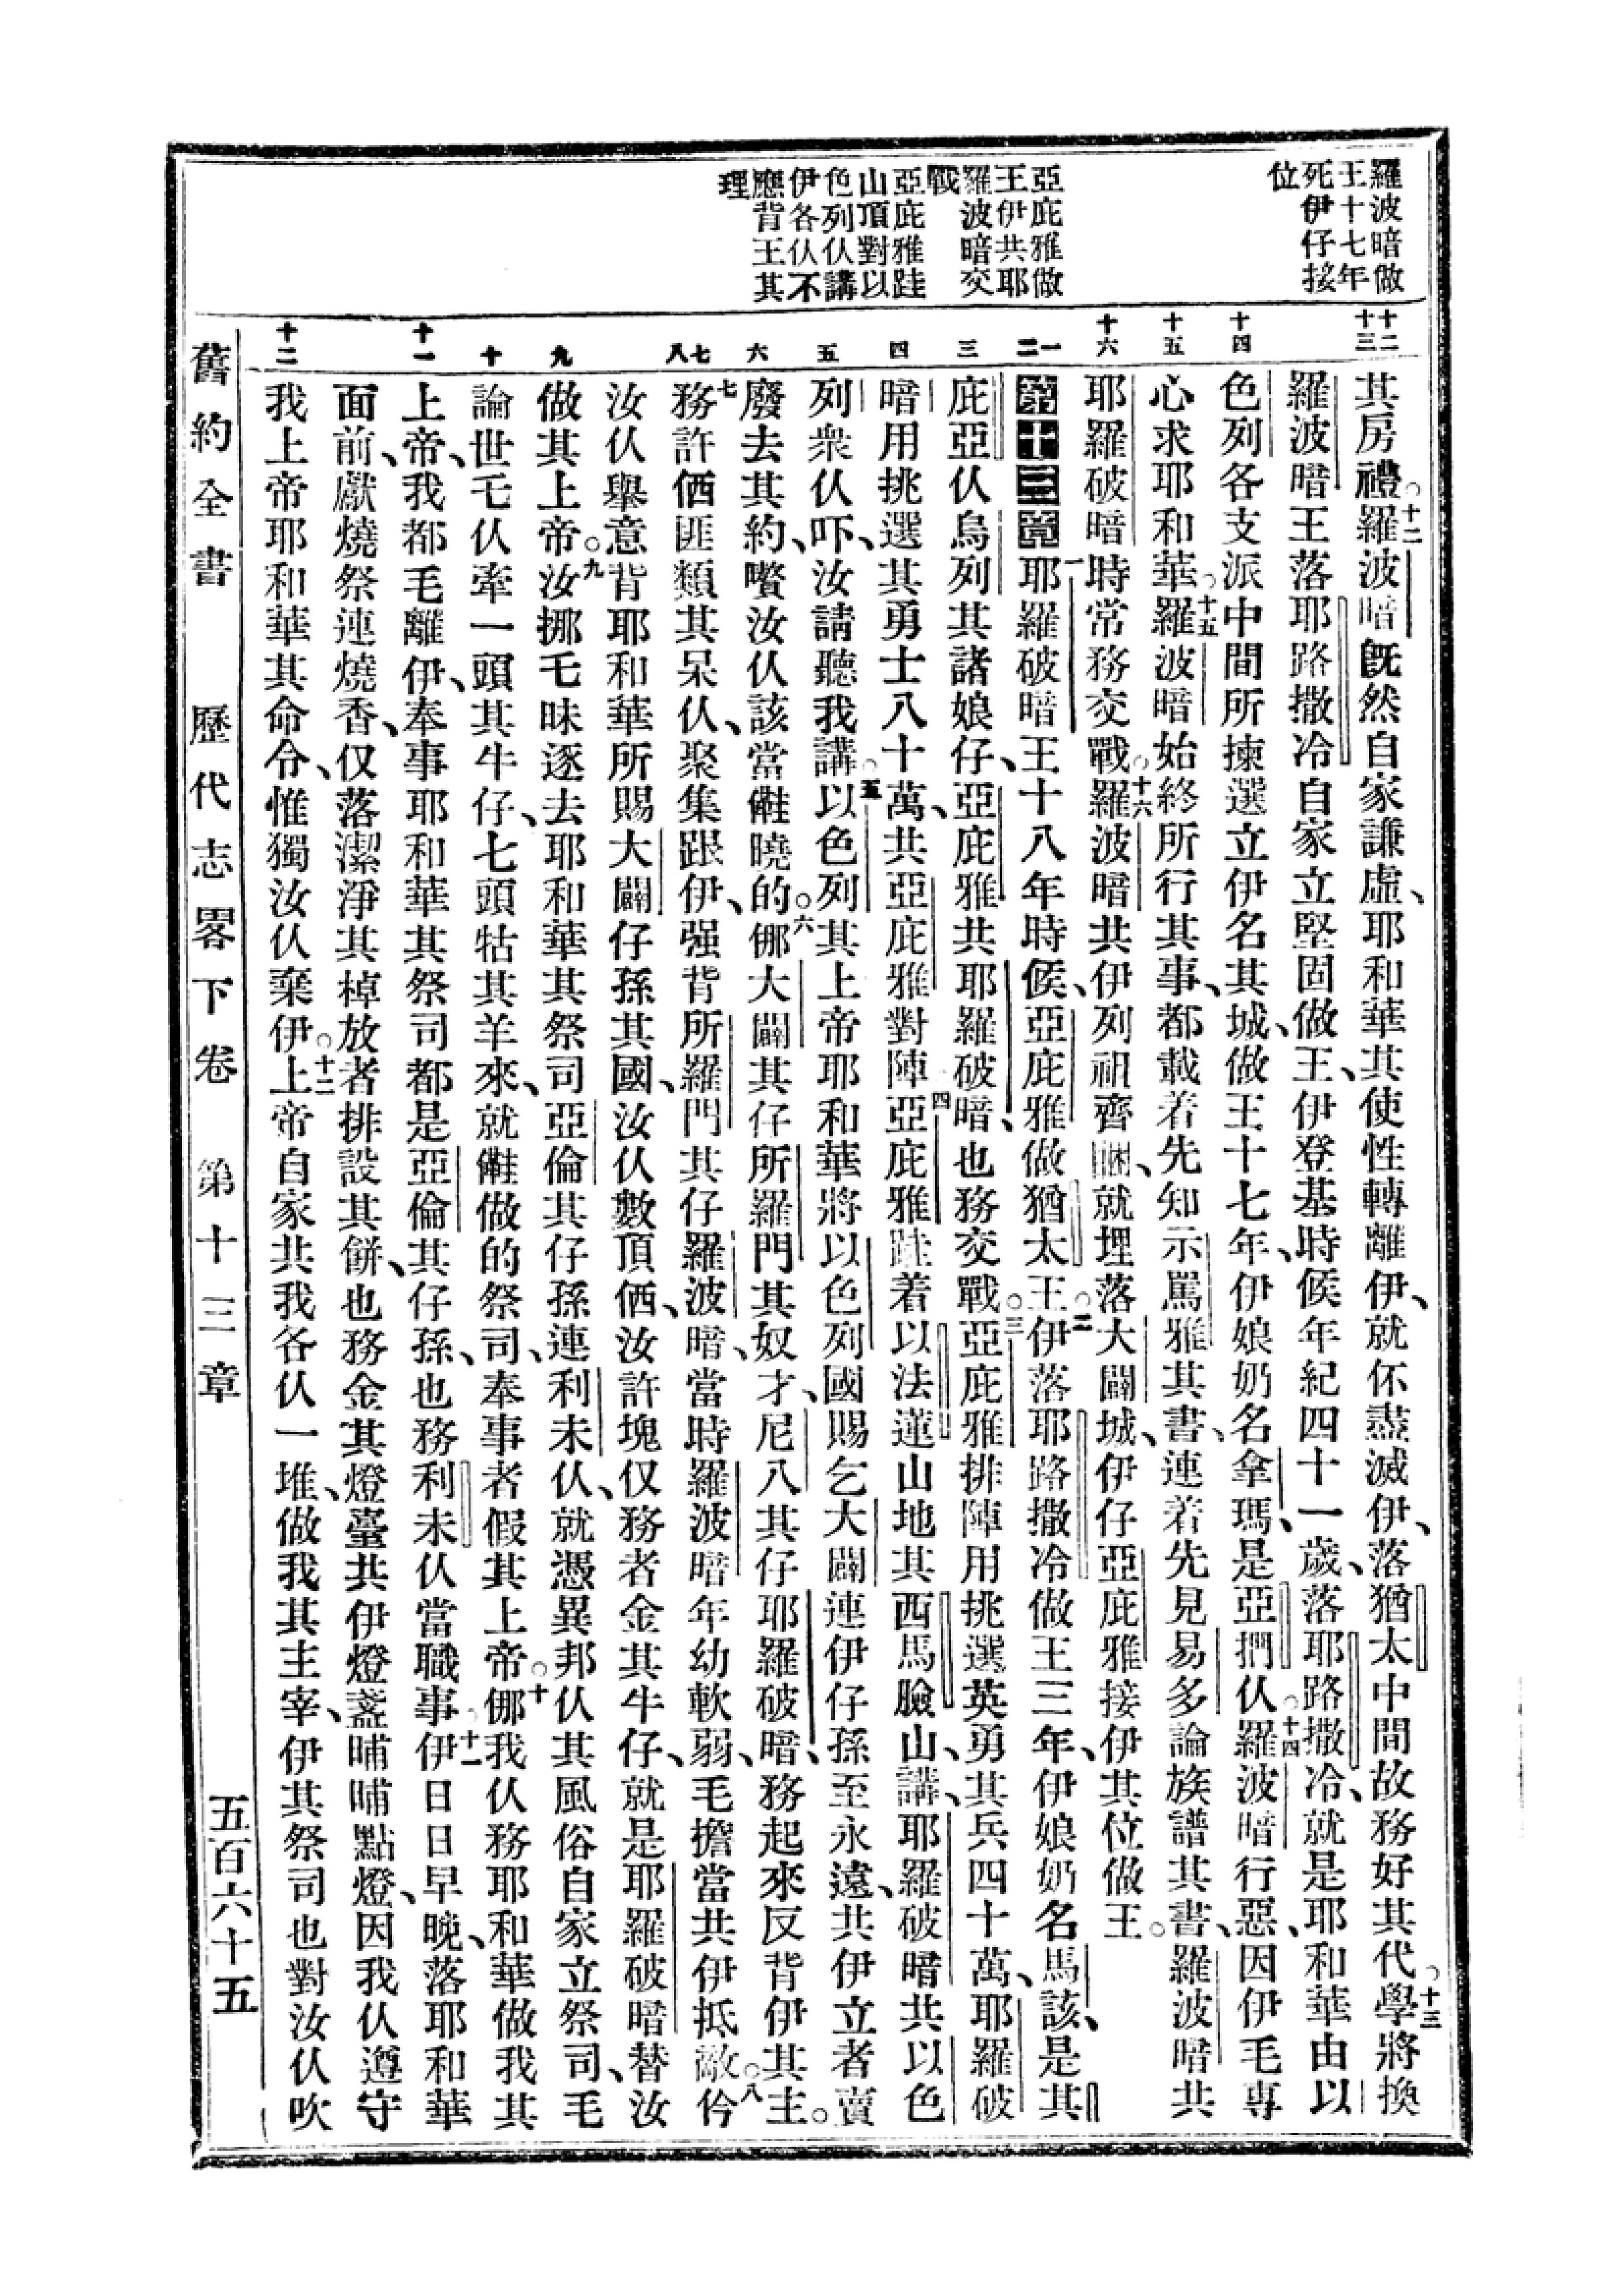 羅波暗做
王十七年
死伊仔接
位
亞庇雅做
王伊共耶
羅波暗交
戰
亞庇雅跬
山頂對以
色列仈講
伊各仈不
應背王其
理
十二
十三
十四
十五
十六
一
二
三
四
五
六
七
八
九
十
十一
十二
其房禮。十二羅波暗旣然自家謙虛、耶和華其使性轉離伊、就伓盡滅伊、落猶太中間故務好其代。十三學將換
羅波暗王落耶路撒冷自家立堅固做王、伊登基時候年紀四十一歲、落耶路撒冷、就是耶和華由以
色列各支派中間所揀選立伊名其城、做王十七年、伊娘奶名拿瑪、是亞捫仈。十四羅波暗行惡、因伊毛專
心求耶和華。十五羅波暗始終所行其事、都載着先知示罵雅其書、連着先見易多論族譜其書、羅波暗共
耶羅破暗時常務交戰。十六羅波暗共伊列祖齊𥅽、就埋落大闢城、伊仔亞庇雅接伊其位做王。
第十三章一耶羅破暗王十八年時候、亞庇雅做猶太王。二伊落耶路撒冷做王三年、伊娘奶名馬該、是其
庇亞仈烏列其諸娘仔、亞庇雅共耶羅破暗、也務交戰。三亞庇雅排陣用挑選英勇其兵四十萬、耶羅破
暗用挑選其勇士八十萬、共亞庇雅對陣四亞庇雅跬着以法蓮山地其西馬臉山、講、耶羅破暗共以色
列衆仈吓、汝請聽我講。五以色列其上帝耶和華將以色列國賜乞大闢連伊仔孫至永遠、共伊立者賣
廢去其約、嚽汝仈該當𣍐曉的。六𠆧大闢其仔所羅門其奴才、尼八其仔耶羅破暗、務起來反背伊其主。
七務許價匪類其呆仈、聚集跟伊、强背所羅門其仔羅波暗、當時羅波暗年幼軟弱、毛擔當共伊抵敵。八伶
汝仈舉意背耶和華所賜大闢仔孫其國、汝仈數頂価、汝許塊仅務者金其牛仔、就是耶羅破暗替汝
做其上帝。九汝挪毛昧逐去耶和華其祭司亞倫其仔孫連利未仈、就憑異邦仈其風俗自家立祭司、毛
論世乇仈牽一頭其牛仔、七頭牯其羊來、就𣍐做的祭司、奉事者假其上帝。十𠆧我仈務耶和華做我其
上帝、我都毛離伊、奉事耶和華其祭司都是亞倫其仔孫、也務利未仈當職事。十一伊日日早晚、落耶和華
面前、獻燒祭連燒香、仅落潔淨其棹放者排設其餅、也務金其燈臺共伊燈盞晡晡點燈、因我仈遵守
我上帝耶和華其命令、惟獨汝仈棄伊。十二上帝自家共我各仈一堆、做我其主宰、伊其祭司也對汝仈吹
舊約全書　歷代志畧下卷　第十三章　五百六十五